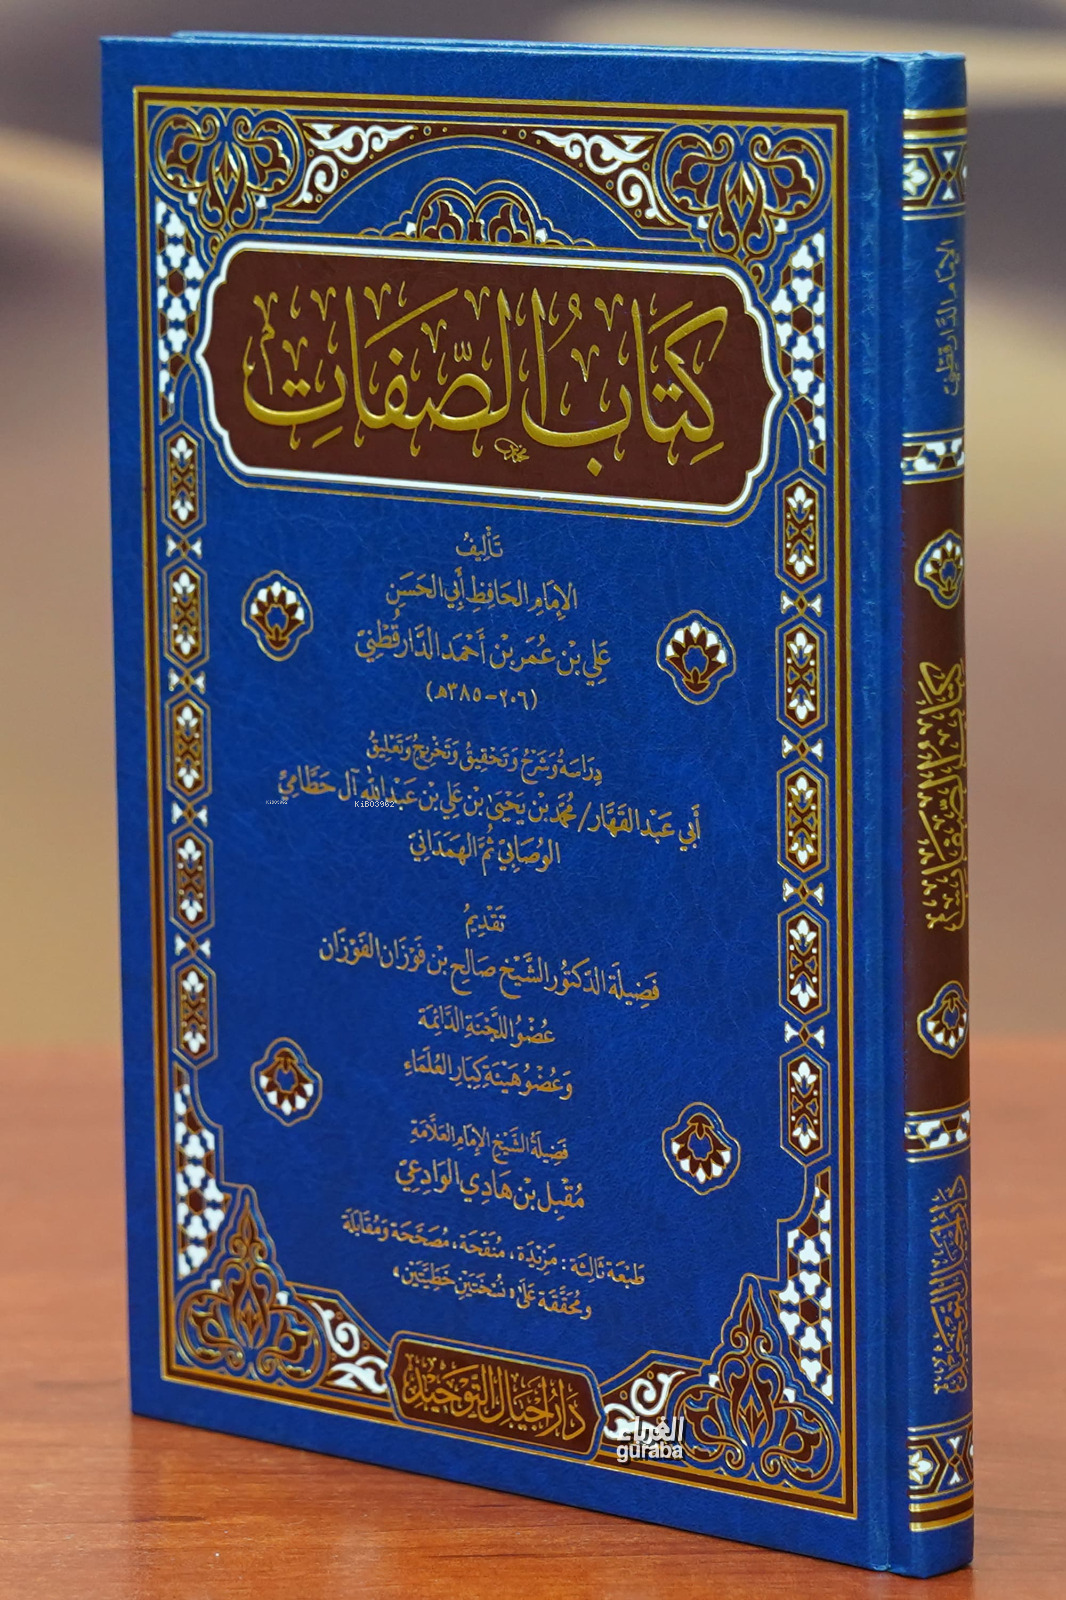 كِتَابُ الصِّفَاتِ
تَأْلِيفُ
الإِمَامِ الحَافِظِ أَبِي الحَسَنِ
عَلِي بْنِ عُمَرَ بْنِ أَحْمَدَ الدَّارقُطْنِيّ
(٣٠٦-٣٨٥هـ)
دِرَاسَةُ وَشَرْحُ وَتَحْقِيقُ وَتَخْرِيجُ وَتَعْلِيقُ
أَبِي عَبْدِ القَهَّار/ مُحَمَّد بْن يَحْيَى بْنِ عَلِي بْنِ عَبْدِ اللّٰه آل حَطَّامِيّ
الوُصَابِيّ ثُمَّ الهَمَدَانِيّ
KiB03962
KiB03962
تَقْدِيمُ
فَضِيلَة الدَكتُور الشَّيْخ صَالِح بْن فَوْزَان الفَوْزَان
عُضْوُ اللَّجْنَةِ الدَّائِمَة
وَعُضْوُ هَيْئَةِ كِبَارِ العُلَمَاءِ
فَضِيلَةُ الشَّيْخ الإِمَام العَلَّامَةِ
مُقْبِل بْن هَادِي الوَادِعِيّ
طَبْعَة ثَالِثَة: مَزِيْدَة، مُنَقْحَة، مُصَحَّحَة وَمُقَابَلَة
وَمُحَقَّقَة عَلَى «نُسْخَتَيْنِ خَطِيَّتَيْنِ»
دَارُ أَجْيَالِ التَّوْحِيْد
الغرباء
guraba
الإمَام الدَّارقُطْنِيّ
كِتَابُ الصِّفَاتِ
دَارُ أَجْيَالِ التَّوْحِيْد